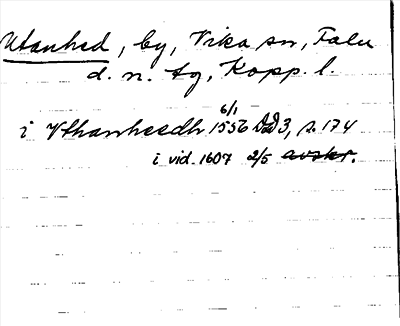 Utanhed, by, Vika sn, Falu
d. n. tg, Kopp. l.
i Vthanheedh 6/1 1556 D2D 3, s. 174
i vid. 1607 2/5 avskr.